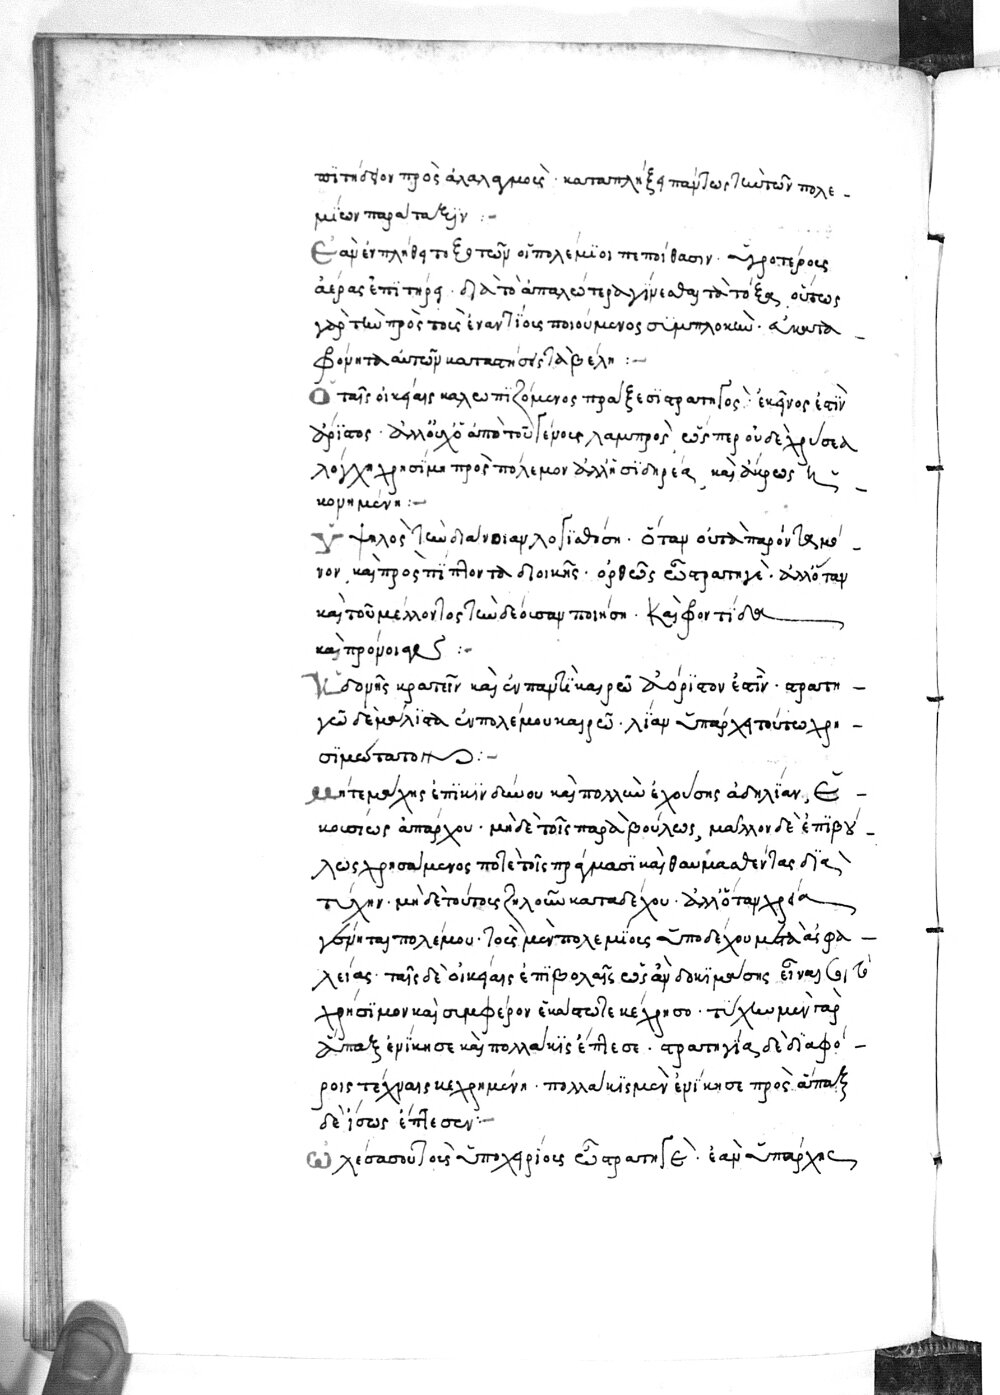 πϊτήδειον πρὸς ἀλαλαγμοὺς · καταπλήξει παντως τὴν τῶν πολε-
μίων παράταξϊν :-
Ἐὰν ἐν πλήθει τοξοτῶν οἱ πολέμϊοι πεποίθασιν · ὑγροτέροις
ἀέρας ἐπϊτήρει · διὰ τὸ ἁπαλώτερα γίνεσθαι τὰ τόξα, οὕτως
γὰρ τὴν πρὸς τοὺς ἐναντίοις ποιούμενος συμπλοκὴν · ἀκατα-
φρόνητα αὐτῶν καταστήσεις τὰ βέλη :-
Ὁ ταῖς οἰκείαις καλλωπϊζόμενος πράξεσϊ στρατηγὸς ἐκεῖνος ἐστὶν
ἄρϊστος · ἀλλ' οὐχ' ὁ ἀπὸ τοῦ γένους λαμπρὸς ὥσπερ οὐδὲ χρυσέα
λόγχη χρησίμη πρὸς πόλεμον ἀλλ' ἡ σϊδηρέα, καὶ ἄκρως ἠ-
κονημένη :-
Ὑψηλὸς τὴν διάνοιαν λογϊσθήση · ὅταν οὐ τὰ παρόντα μό-
νον, καὶ προσπίπτοντα διοικῆς · ὀρθῶς ὦ στρατηγὲ · ἀλλ' ὅταν
καὶ τοῦ μέλλοντος τὴν δέουσαν ποιήση · καὶ φροντίδα
καὶ πρόνοιαν :-
Ἡδονῆς κρατεῖν καὶ ἐν παντὶ καιρῶ ἀόρϊστον ἐστὶν · στρατη-
γῶ δὲ μάλϊστα ἐν πολέμου καιρῶ · λίαν ὑπάρχει τούτω χρη-
σϊμώτατον :-
Μήτε μάχης ἐπϊκϊνδύνου καὶ πολλὴν ἐχούσης ἀδηλίαν, ἑ-
κουσίως ἀπάρχου · μὴ δὲ τοῖς παραβούλως, μᾶλλον δὲ ἐπϊβού-
λως χρησάμενος ποτε τοῖς πράγμασϊ καὶ θαυμασθέντας διὰ
τύχην · μὴ δὲ τούτοις ζηλοῦν καταδέχου · ἀλλ' ὅταν χρεία
γένηται πολέμου · τοὺς μὲν πολεμίοις ὑποδέχου μετὰ ἀσφα-
λείας · ταῖς δὲ οἰκείαις ἐπϊβολαῖς ὡς ἂν δοκϊμάσης εἶναι σοι τὸ
χρήσϊμον καὶ συμφέρον ἑκάστωτε κέχρησο · τύχη μὲν γὰρ
ἅπαξ ἐνίκησε καὶ πολλάκϊς ἔπεσε · στρατηγία, δὲ διαφό-
ροις τέχναις κεχρημένη · πολλάκϊς μὲν ἐνίκησε πρὸς ἅπαξ
δὲ ἴσως ἔπεσεν :-
χεσασοῦ τοῖς ὑποχειρίοις ὦ στρατηγὲ · ἐὰν ὑπάρχης